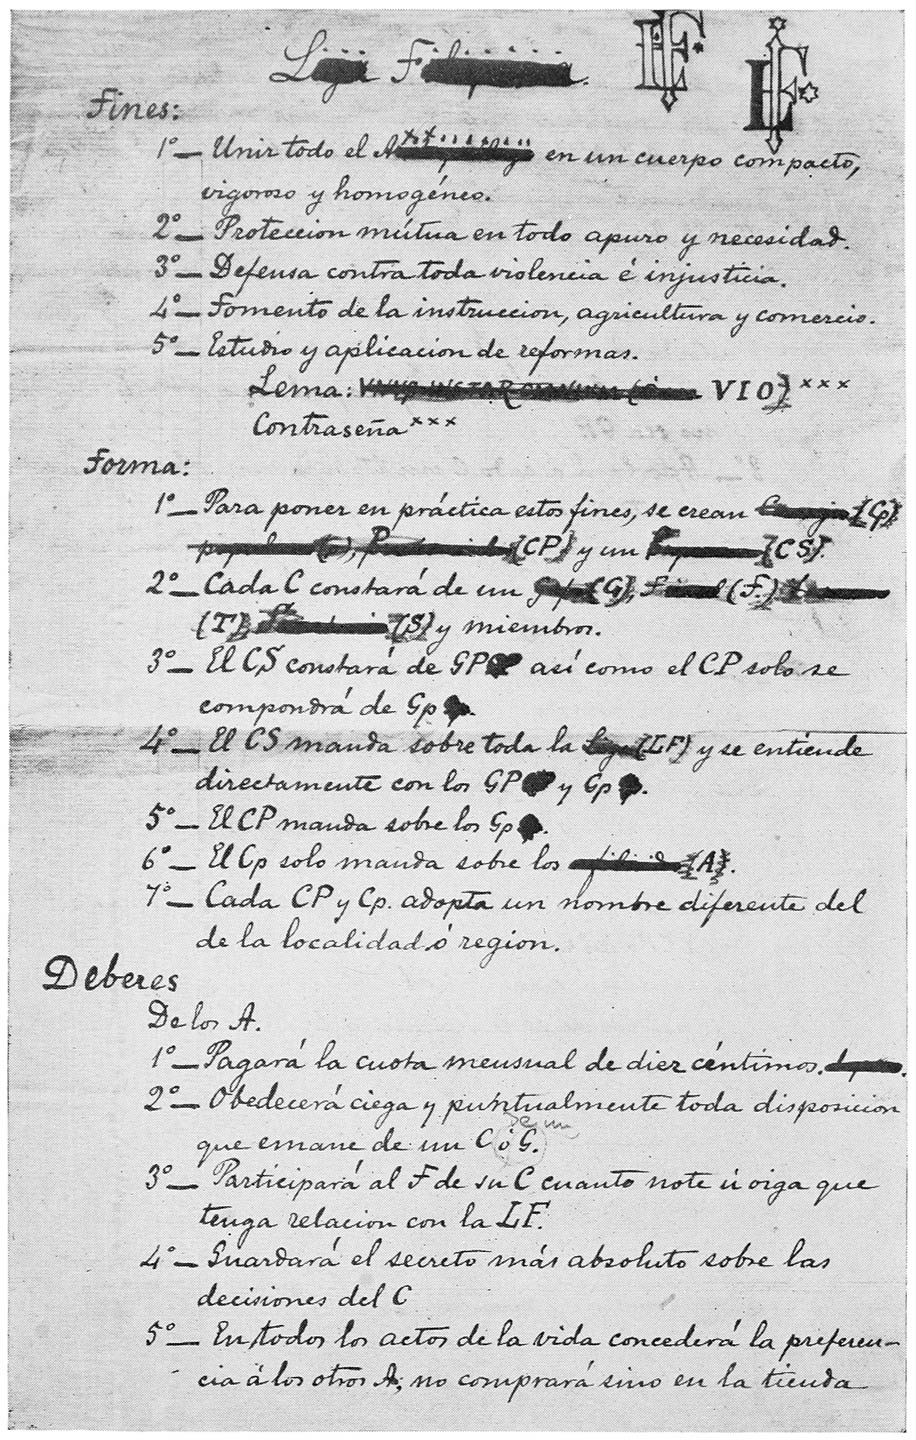 Liga F
Fines:
1º — Unir todo el A en un cuerpo compacto,
vigoroso y homogéneo.
2º — Proteccion mútua en todo apuro y necesidad.
3º — Defensa contra toda violencia é injusticia.
4º — Fomento de la instruccion, agricultura y comercio.
5º — Estudio y aplicacion de reformas.
Lema: VNUS INSTAR OMNIUM ( VIO) xxx
Contraseña xxx
Forma:
1º — Para poner en práctica estos fines, se crean (Cp)
(CP) y un (CS).
2º — Cada C constará de un (G), (F.)
(T), (S) y miembros.
3º — El CS constará de GP así como el CP solo se
compondrá de Gp.
4º — El CS manda sobre toda la Liga (LF) y se entiende
directamente con los GP y Gp.
5º — El CP manda sobre los Gp.
6º — El Cp solo manda sobre los (A).
7º — Cada CP y Cp. adopta un nombre diferente del
de la localidad ó region.
Deberes
De los A.
1º — Pagará la cuota mensual de diez céntimos.
2º — Obedecerá ciega y puntualmente toda disposicion
de un
que emane de un C ó G.
3º — Participará al F de su C cuanto note ú oiga que
tenga relacion con la LF.
4º — Guardará el secreto más absoluto sobre las
decisiones del C
5º — En todos los actos de la vida concederá la preferen-
cia á los otros A; no comprará sino en la tienda